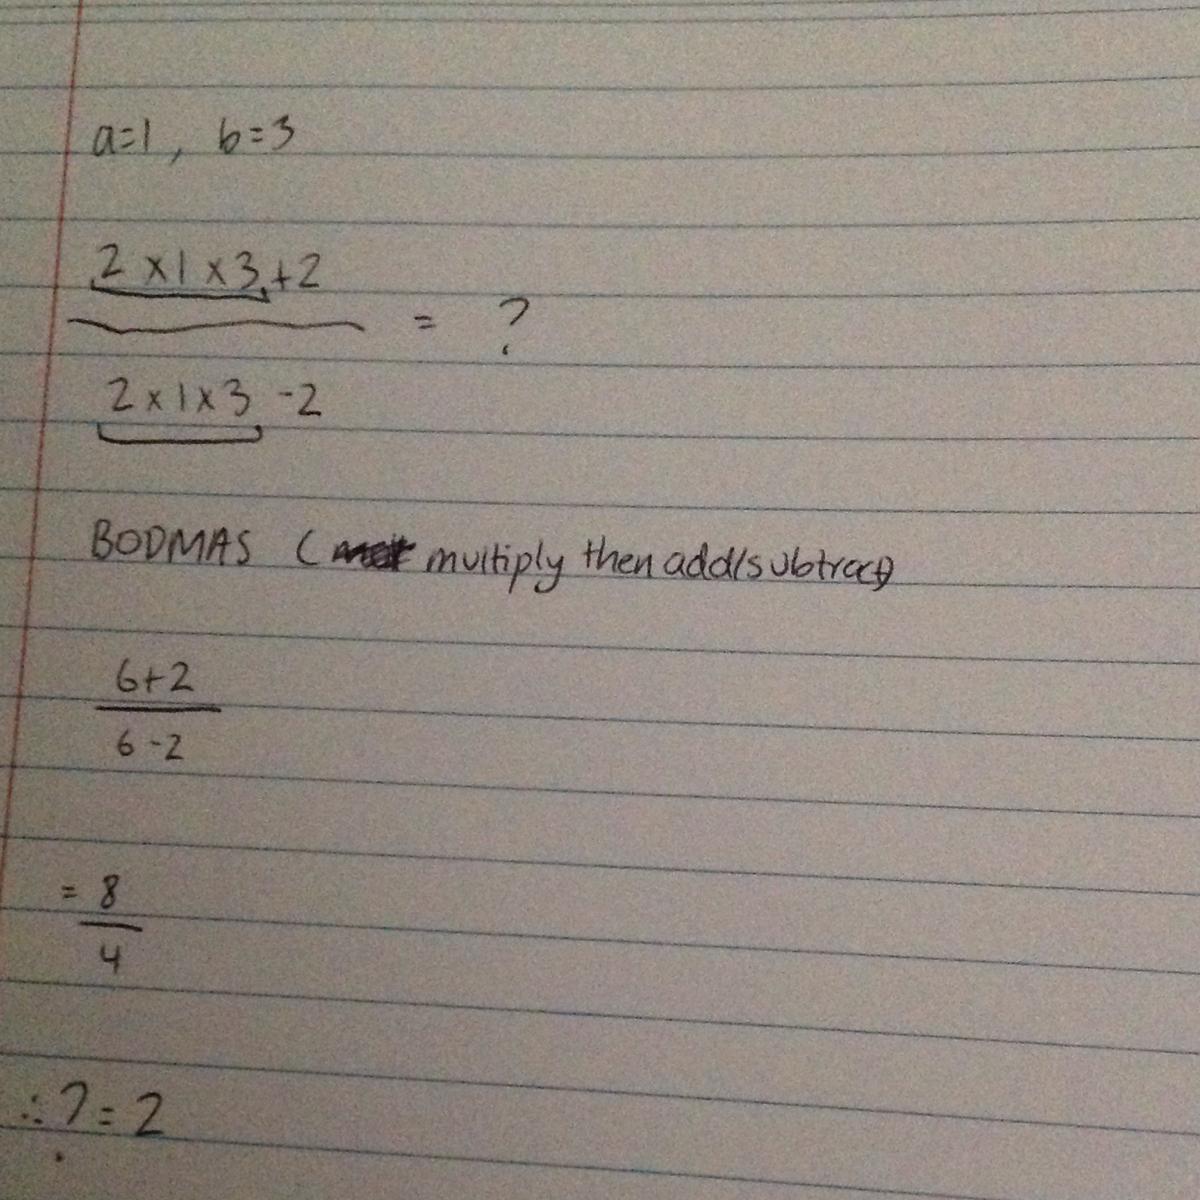 a=1, b=3
2 x 1 x 3 + 2
= ?
2 x 1 x 3 - 2
BODMAS ( multiply then add/subtract)
6+2
6-2
= 8
4
∴ ? = 2